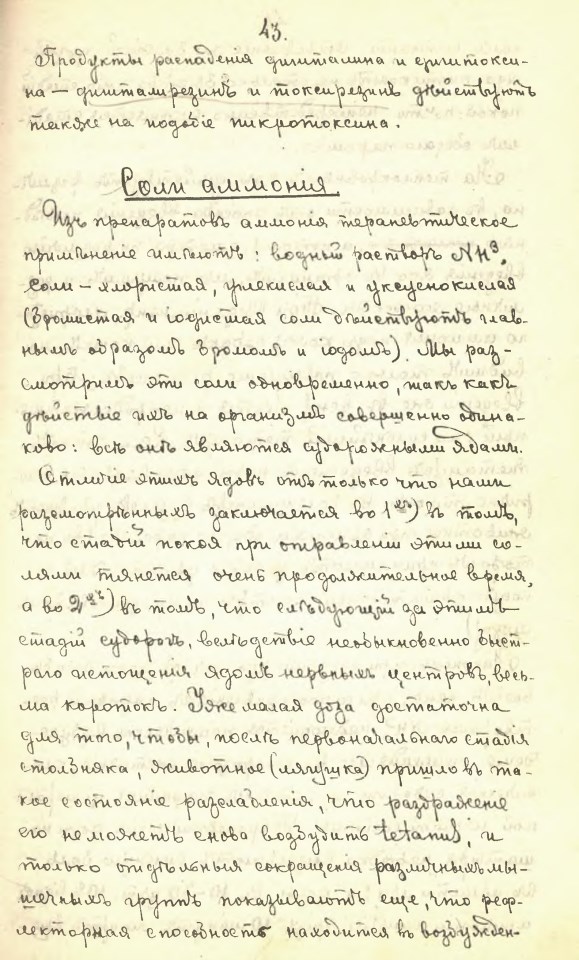 43.
Продукты распаденія дигиталина и дигитокси-
на — дигиталрезинъ и токсирезинъ дѣйствуютъ
также на подобіе пикротоксина.
Соли аммонія.
Изъ препаратовъ аммонія терапевтическое
примѣненіе имѣютъ: водный растворъ NH³,
соли — хлористая, углекислая и уксуснокислая
(бромистая и іодистая соли дѣйствуютъ глав-
нымъ образомъ бромомъ и іодомъ). Мы раз-
смотримъ эти соли одновременно, такъ какъ
дѣйствіе ихъ на организмъ совершенно одина-
ково: всѣ онѣ являются судорожными ядами.
Отличіе этихъ ядовъ отъ только что нами
разсмотрѣнныхъ заключается во 1хъ) въ томъ,
что стадій покоя при отравленіи этими со-
лями тянется очень продолжительное время,
а во 2хъ) въ томъ, что слѣдующій за этимъ
стадій судорогъ, вслѣдствіе необыкновенно быст-
раго истощенія ядомъ нервныхъ центровъ, весь-
ма коротокъ. Уже малая доза достаточна
для того, чтобы, послѣ первоначальнаго стадія
столбняка, животное (лягушка) пришло въ та-
кое состояніе разслабленія, что раздраженіе
его не можетъ снова возбудить tetanus, и
только отдѣльныя сокращенія различныхъ мы-
шечныхъ группъ показываютъ еще, что реф-
лекторная способность находится въ возбужден-